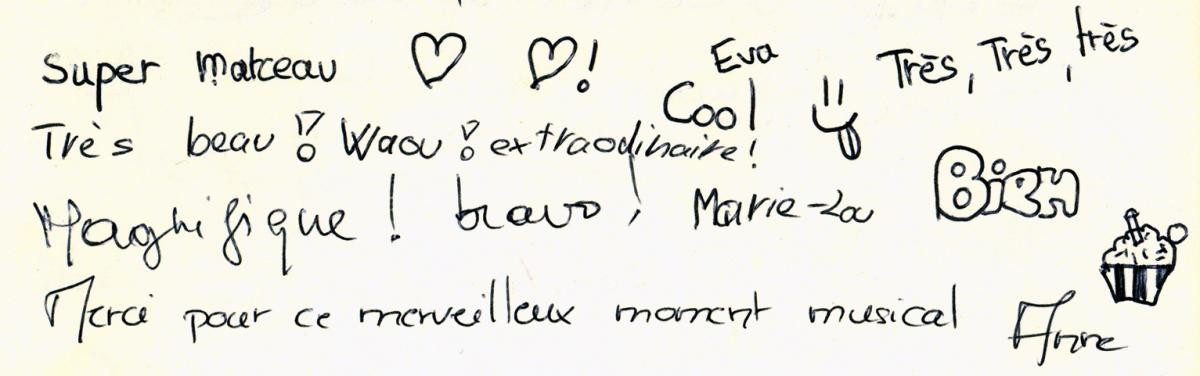 Super matceau ♡ ♡!
Eva
Cool
Très, Très, très
Très beau! Waou! extraodinaire!
Bien
Magnifique! bravo! Marie-Lou
Merci pour ce merveilleux moment musical Anne